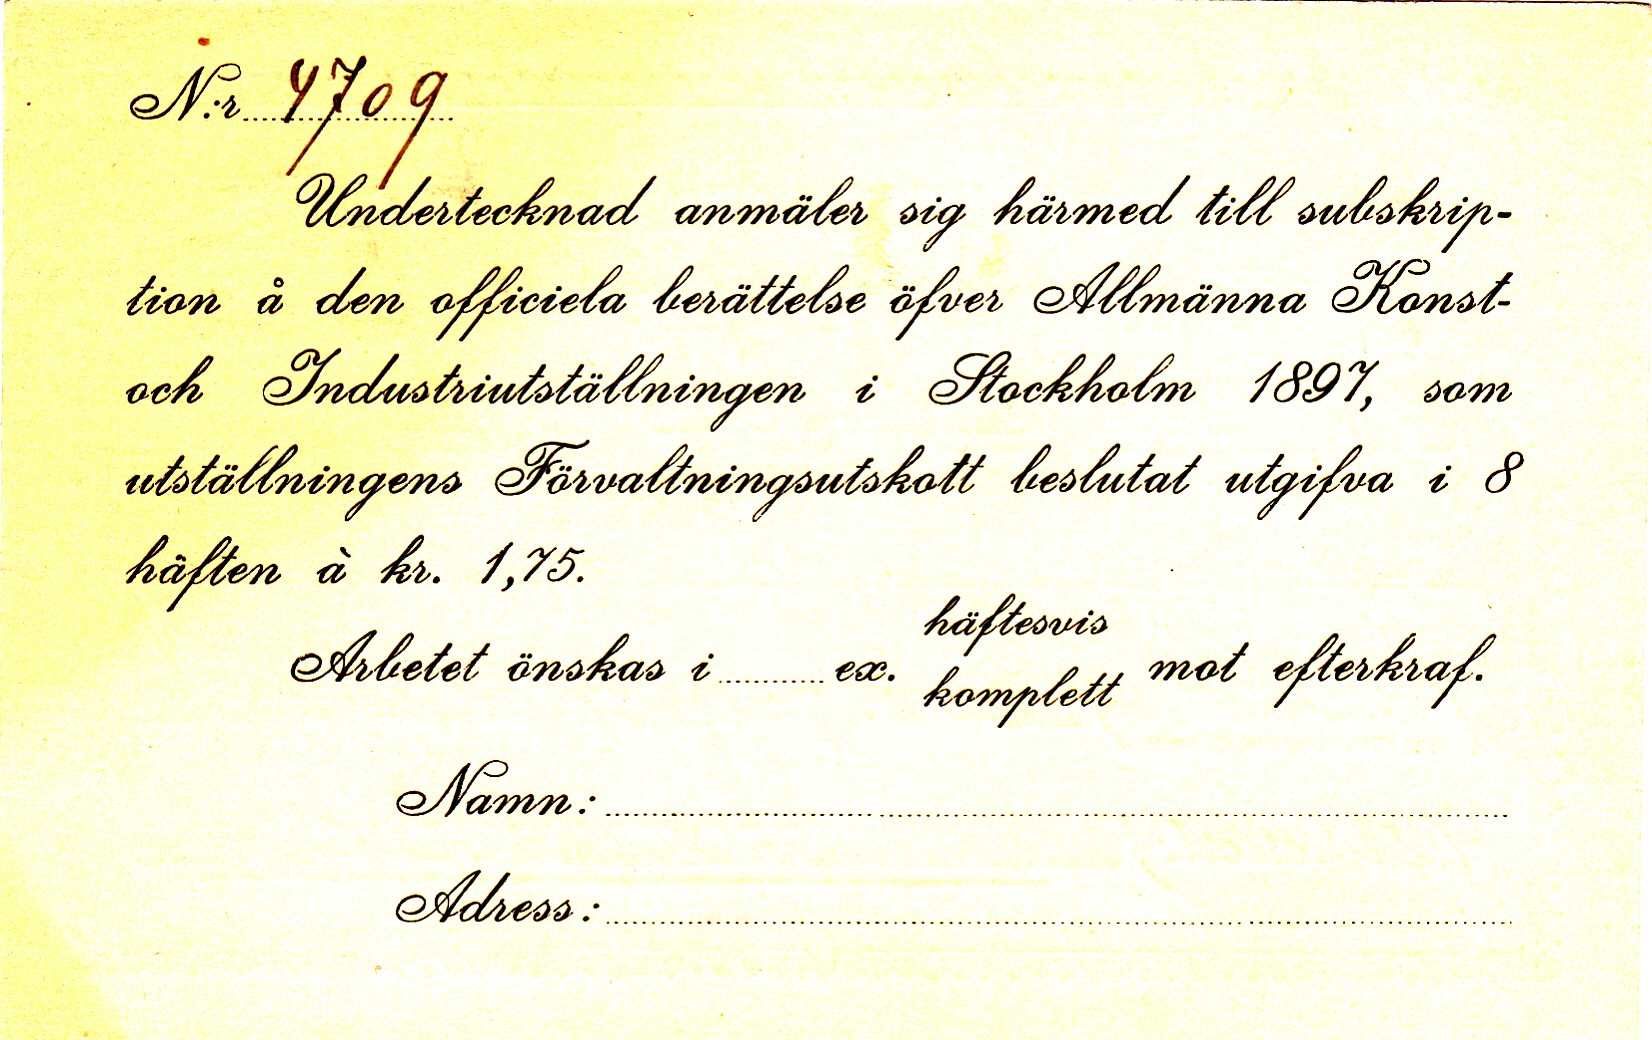 N:r 4709
Undertecknad anmäler sig härmed till subskrip-
tion å den officiela berättelse öfver Allmänna Konst-
och Industriutställningen i Stockholm 1897, som
utställningens Förvaltningsutskott beslutat utgifva i 8
häften à kr. 1,75.
häftesvis
Arbetet önskas i ............ ex. mot efterkraf.
komplett
Namn:
Adress: